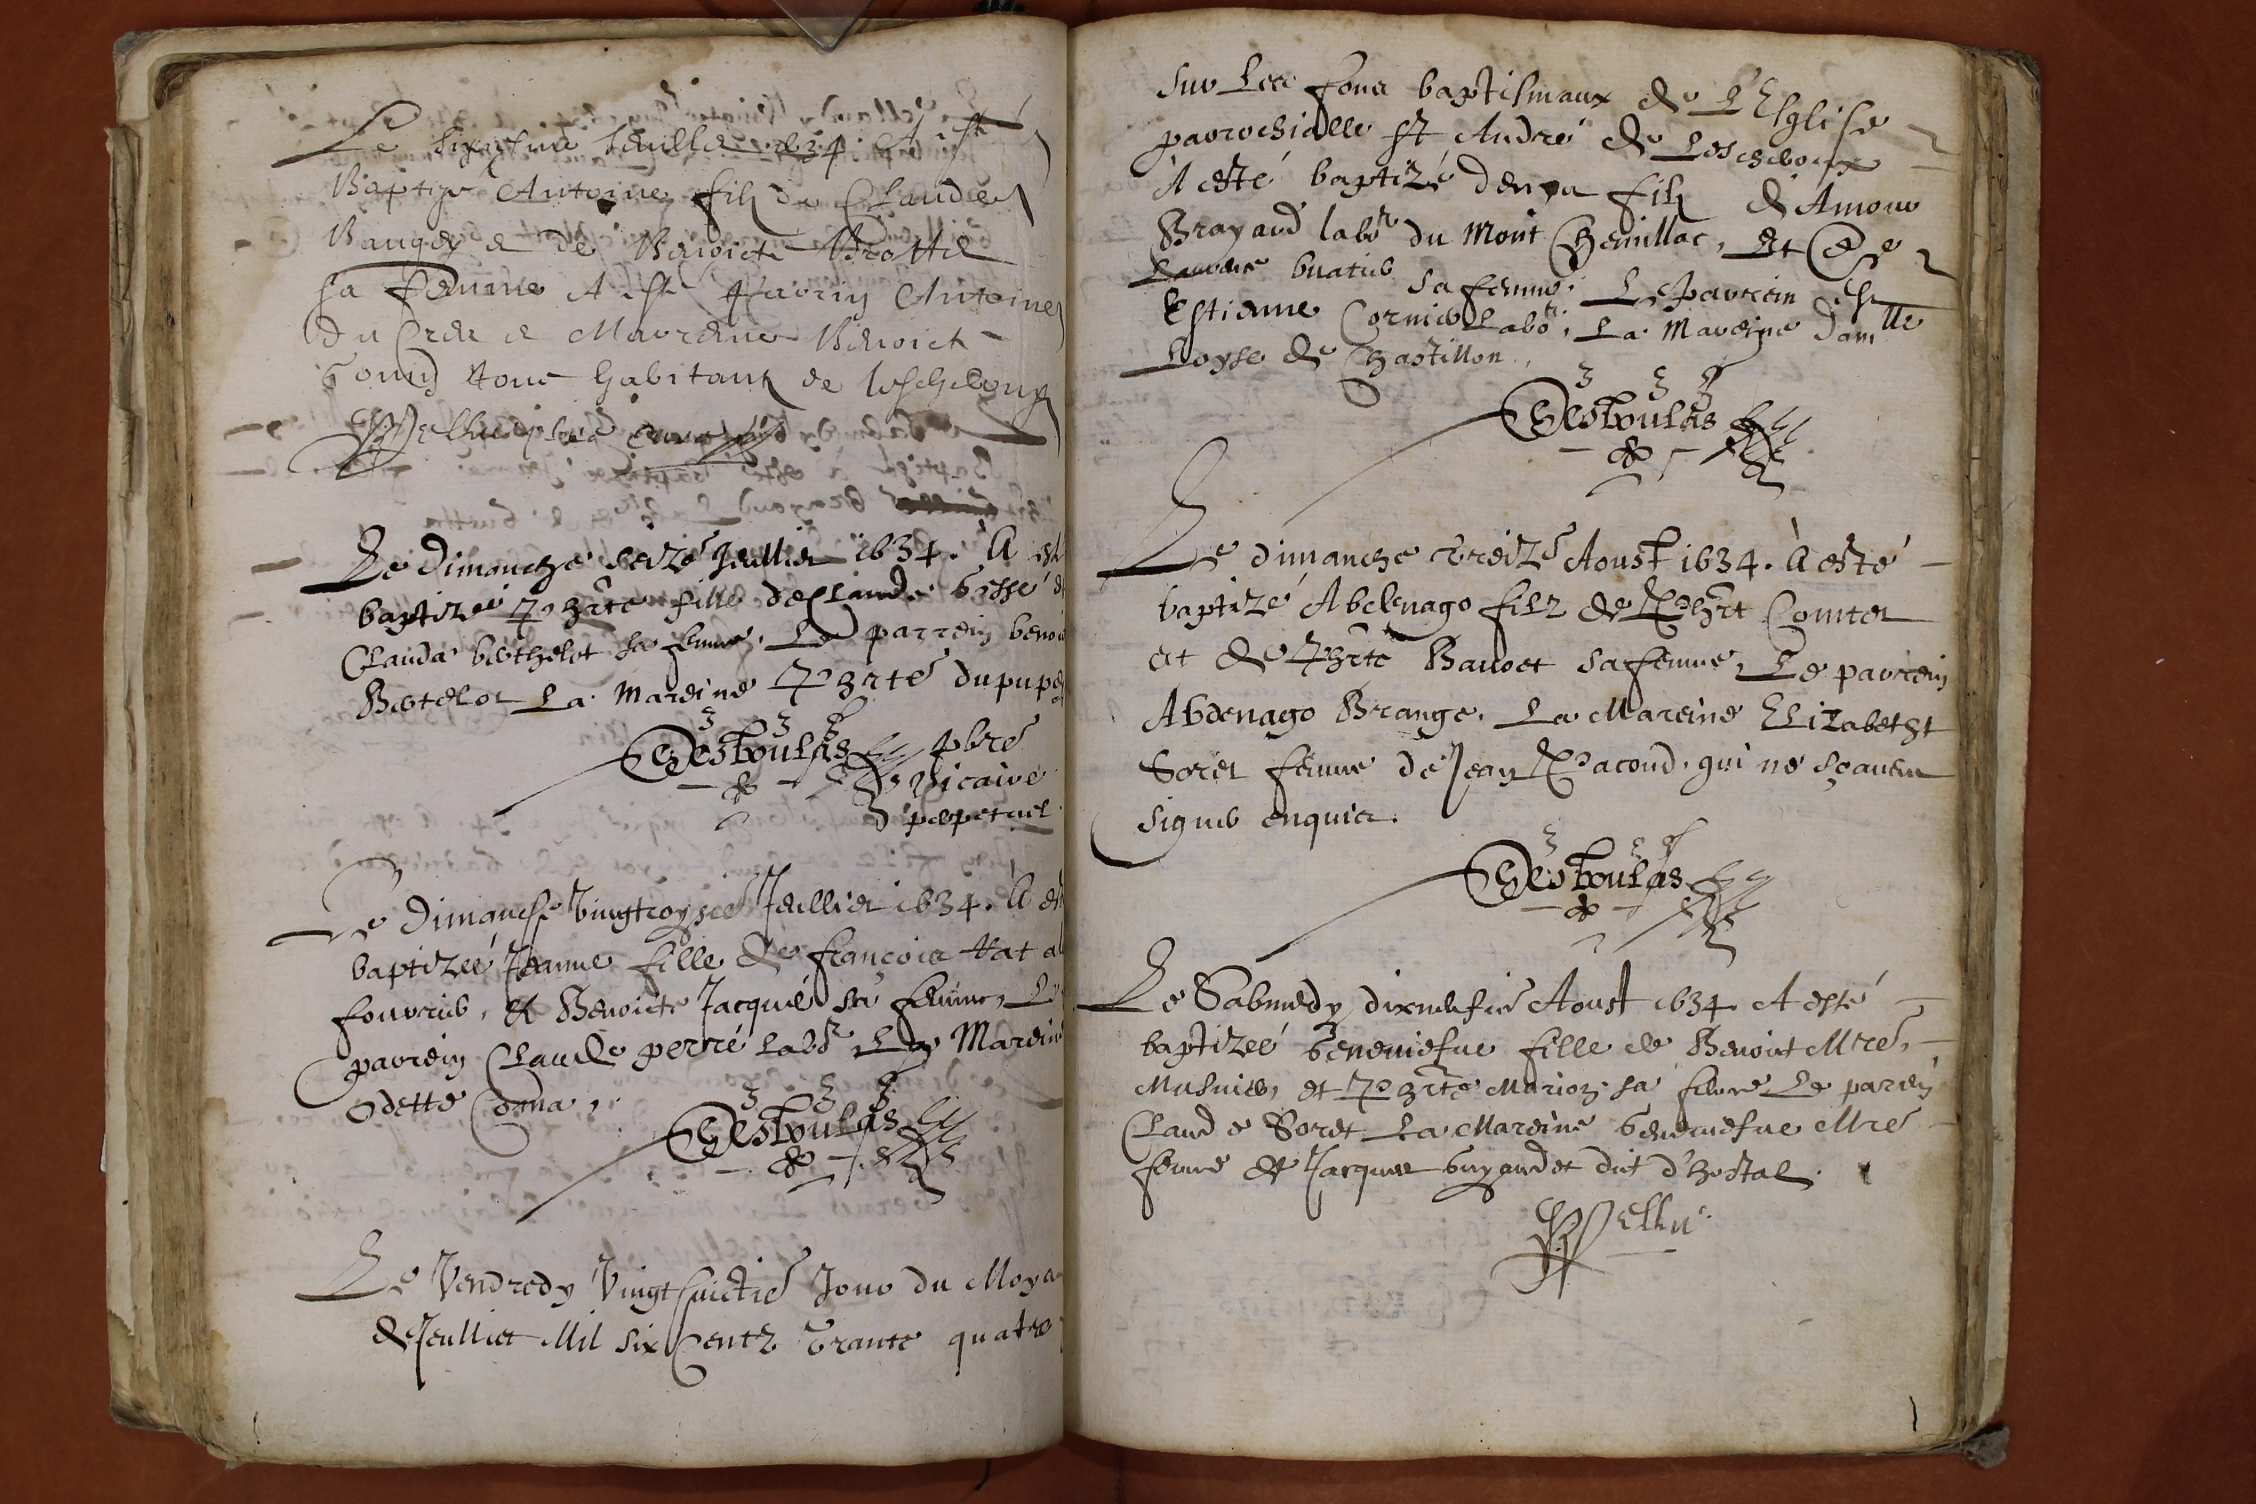 Le sixyesme Jeullet 1634 A esté
Baptize Antoine filz de Claude
et de Benoicte
sa femme A esté parrin Antoine
du Cret et Marrene Benoicte
tous habitantz de leschroux
curé
Le Dimanche seize Jeullet 1634. A esté
baptizée phrte fille de Claude et
Clauda berthelot sa femme, Le parrein benoi
Bertelot La Mareine phrte dupup
Desboulas pbre
Vicaire
perpetuel
Le Dimanche Vingtroysie Jeullet 1634. A esté
baptizée Jeanne fille de françois
et Benoicte Jacqué sa femme, Le
parrein Claude perré Labor La Mareine
Odette Coma,
Desboulas
Le Vendredy Vingthuictie Jour du Moys
de Jeullet Mil six Centz Trante quatre
sur Les fons baptismaux de L'Esglise
parrochialle St André de Leschroux
A esté baptizé filz d'Amour
Brayard labr du Mont et
sa femme, Le parrein est
Estienne Cornier labor, La Mareine Damlle
Loyse de Chastillon,
Desboulas
Le dimanche Treize Aoust 1634. A esté
baptizé Abdenago filz de Phrt Comtet
et de Phrte Bavoet sa femme, Le parrein
Abdenago Brange. La Mareine Elizabetht
Soret femme de Jean Pacoud, qui ne sçavent
signer enquis.
Desboulas
Le Sabmedy dixneufie Aoust 1634 A esté
baptizée Geneviefve fille de Benoict Mre,
Musnier, et phrte Marion sa feme Le parein
Claude Soret La Mareine Genevefve Mre
feme de Jacques Guyaudet dict d'hostal.
Pellu